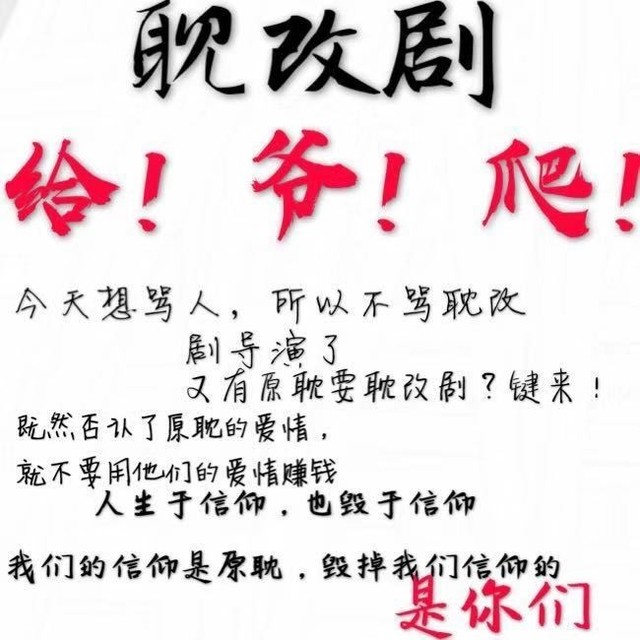 耽改剧
给！爷！爬！
今天想骂人，所以不骂耽改
剧导演了
又有原耽要耽改剧？键来！
既然否认了原耽的爱情，
就不要用他们的爱情赚钱
人生于信仰，也毁于信仰
我们的信仰是原耽，毁掉我们信仰的
是你们